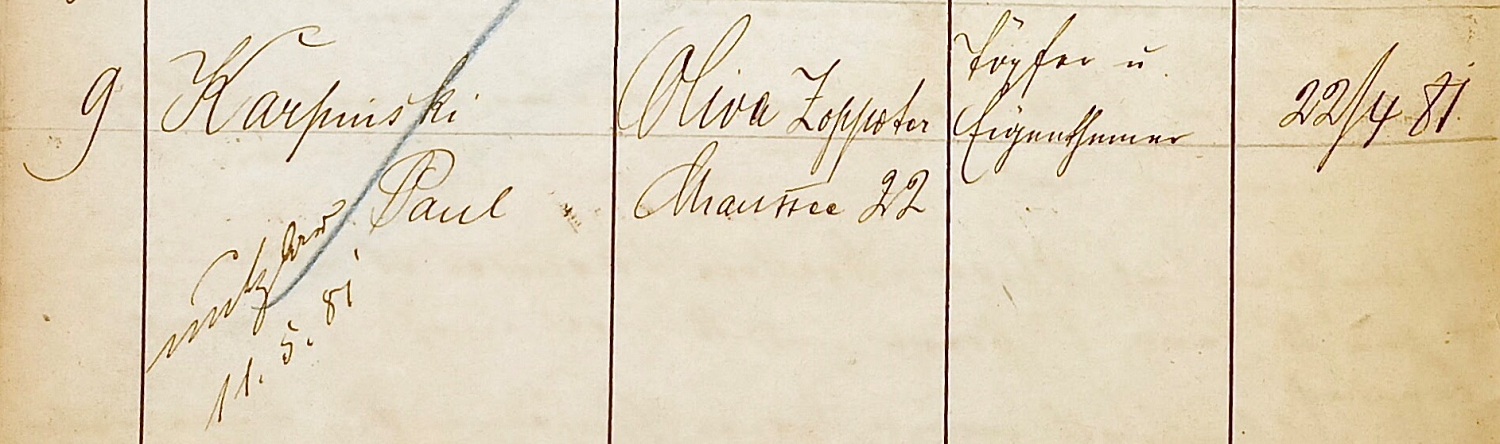 9 Karpinski Oliva Zoppoter Töpfer u. 22/4 81.
Paul Chaussee 22 Eigenthümer
11. 5. 81